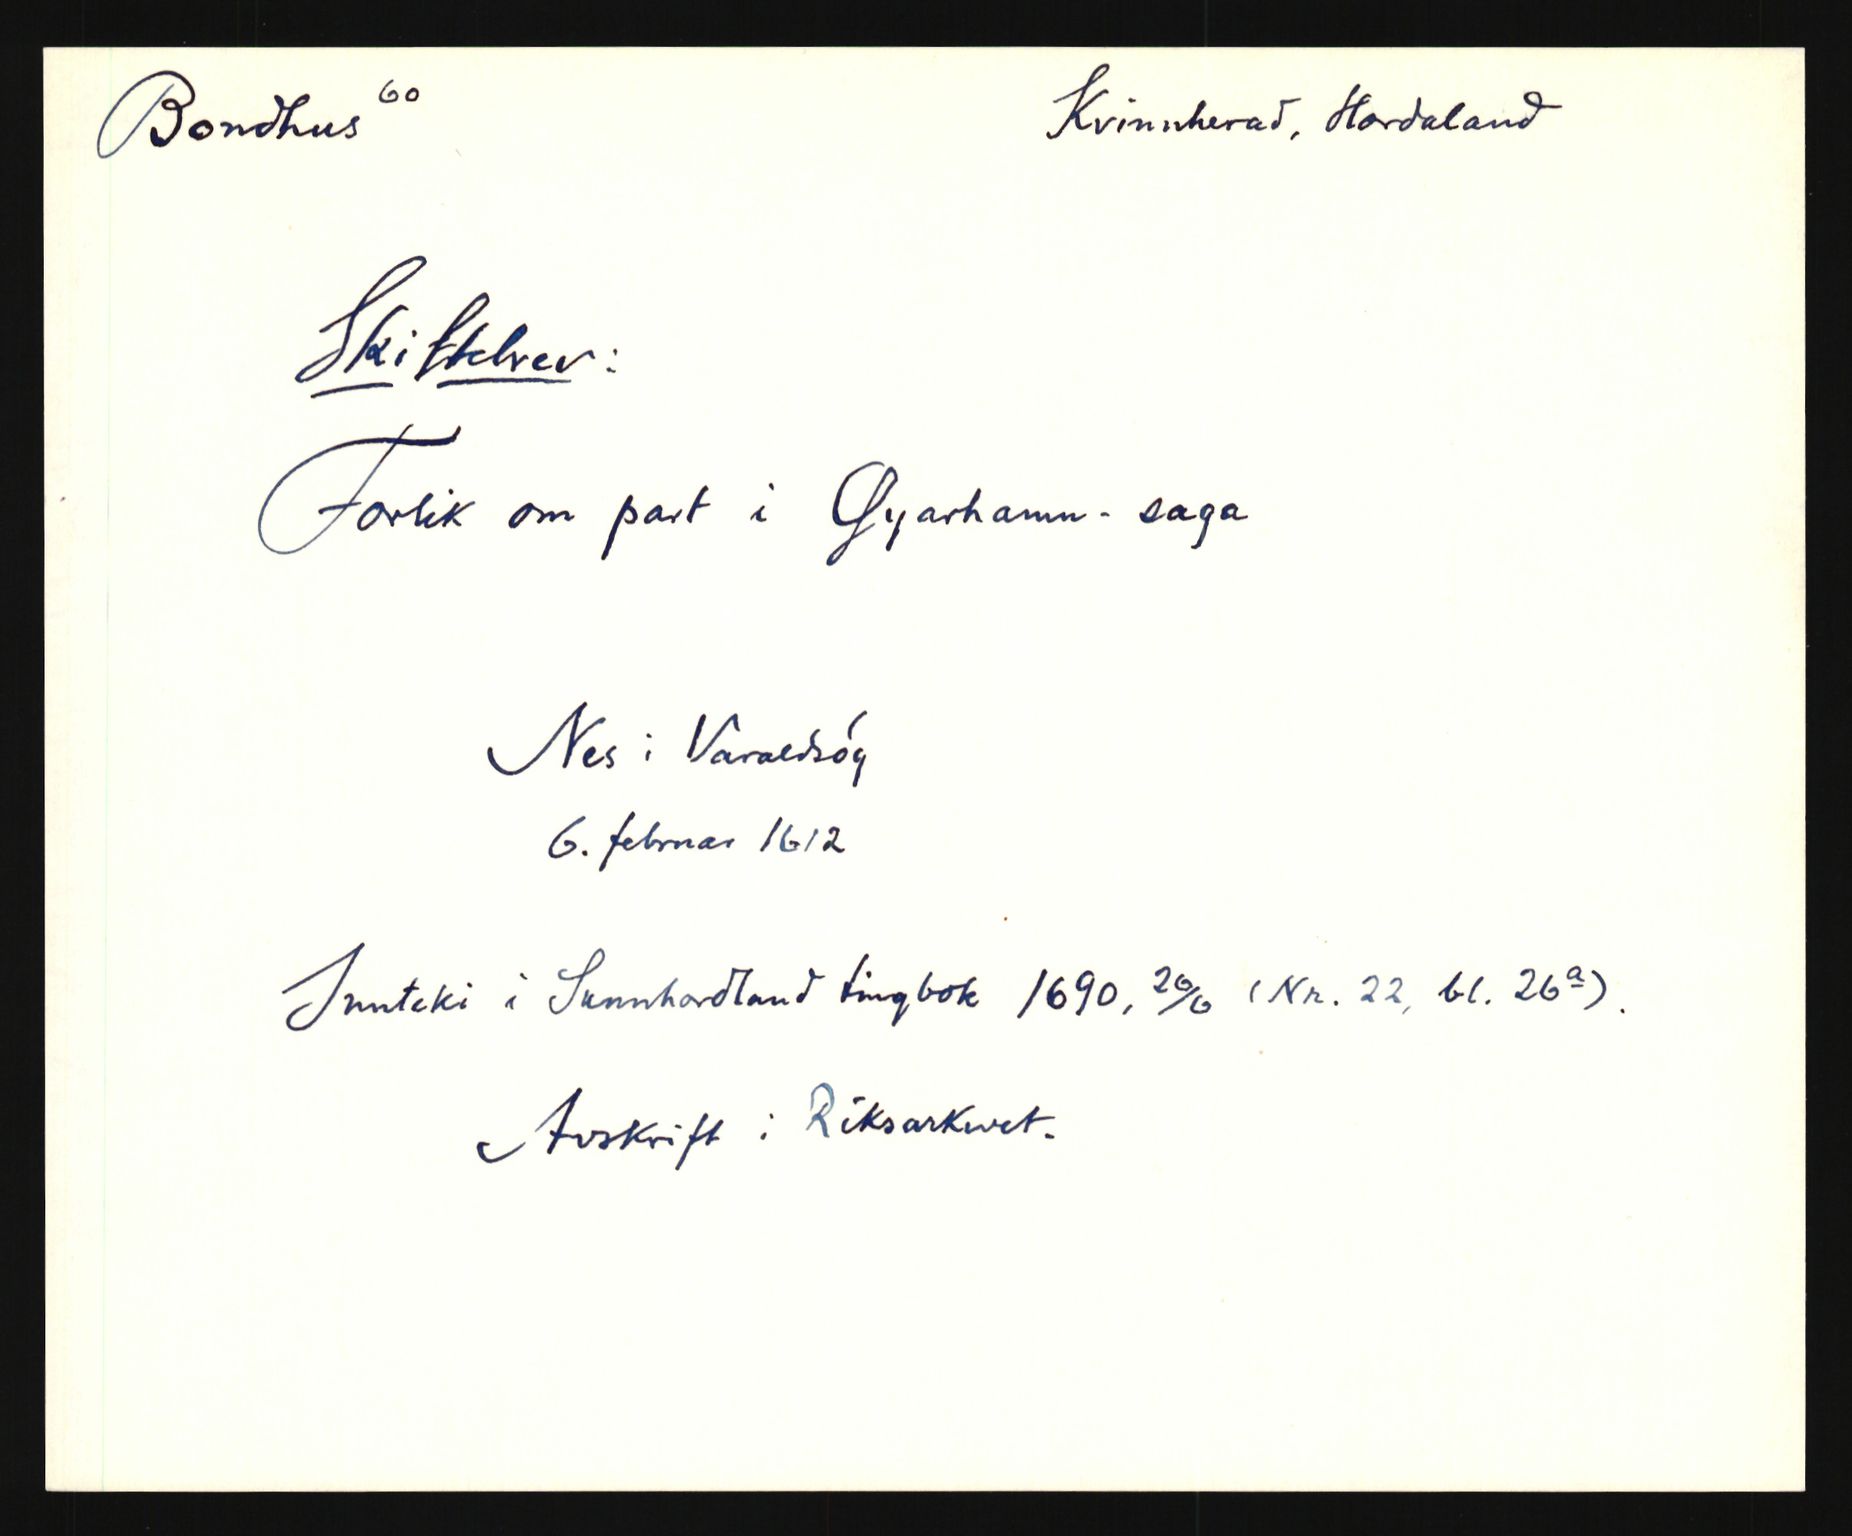 Bondhus 60
Kvinnherad, Hordaland
Skiftebrev:
Forlik om part i Øyarhamn-saga
Nes i Varaldsøy
6. februar 1612
Innteki i Sunnhordland tingbok 1690, 26/6 (Nr. 22, bl. 26a).
Avskrift i Riksarkivet.